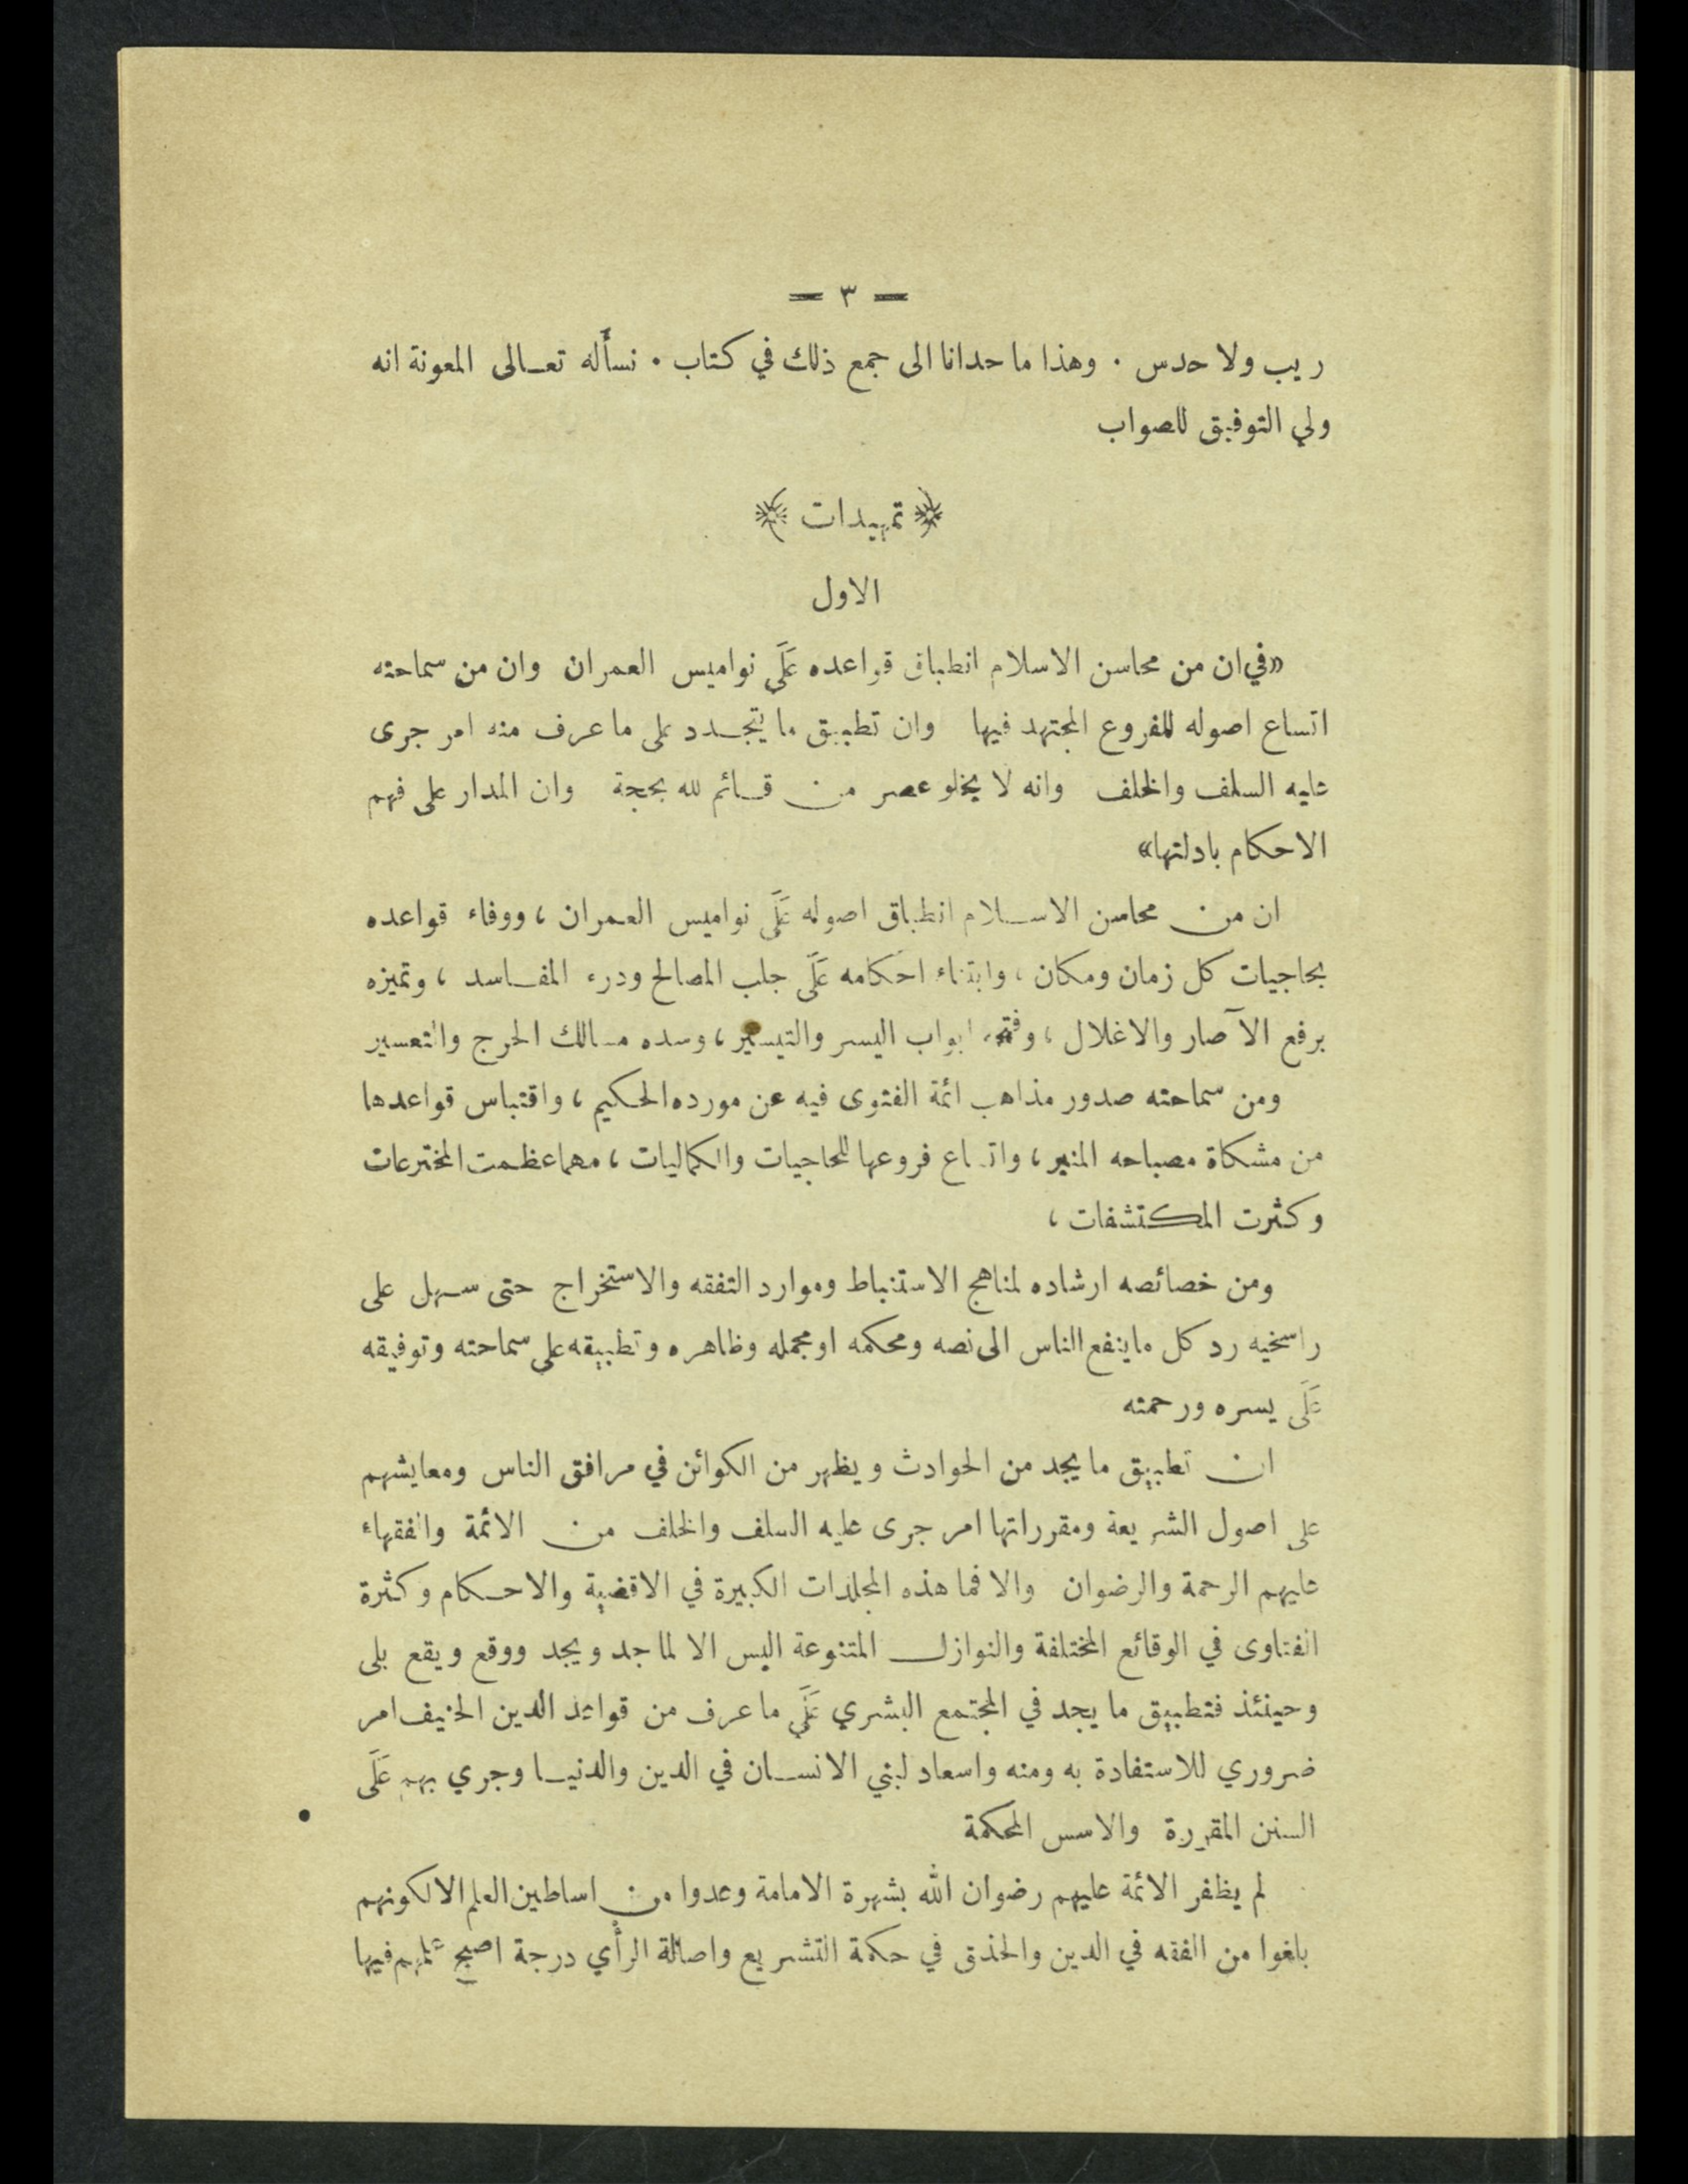 — ٣ —
ريب ولا حدس . وهذا ما حدانا الى جمع ذلك في كتاب . نسأله تعالى المعونة انه
ولي التوفيق للصواب
﴿ تمهيدات ﴾
الاول
«في ان من محاسن الاسلام انطباق قواعده عَلَى نواميس العمران وان من سماحته
اتساع اصوله للفروع المجتهد فيها وان تطبيق ما يتجدد على ما عرف منه امر جرى
عليه السلف والخلف وانه لا يخلو عصر من قائم لله بحجة وان المدار على فهم
الاحكام بادلتها»
ان من محاسن الاسلام انطباق اصوله عَلَى نواميس العمران ، ووفاء قواعده
بحاجيات كل زمان ومكان ، وابتناء احكامه عَلَى جلب المصالح ودرء المفاسد ، وتميزه
برفع الآصار والاغلال ، وفتحه ابواب اليسر والتيسير ، وسده مسالك الحرج والتعسير
ومن سماحته صدور مذاهب ائمة الفتوى فيه عن مورده الحكيم ، واقتباس قواعدها
من مشكاة مصباحه المنير ، واتساع فروعها للحاجيات والكماليات ، مهما عظمت المخترعات
وكثرت المكتشفات ،
ومن خصائصه ارشاده لمناهج الاستنباط وموارد التفقه والاستخراج حتى سهل على
راسخيه رد كل ما ينفع الناس الى نصه ومحكمه او مجمله وظاهره وتطبيقه على سماحته وتوفيقه
عَلَى يسره ورحمته
ان تطبيق ما يجد من الحوادث ويظهر من الكوائن في مرافق الناس ومعايشهم
على اصول الشريعة ومقرراتها امر جرى عليه السلف والخلف من الائمة والفقهاء
عليهم الرحمة والرضوان والا فما هذه المجلدات الكبيرة في الاقضية والاحكام وكثرة
الفتاوى في الوقائع المختلفة والنوازل المتنوعة اليس الا لما جد ويجد ووقع ويقع بلى
وحينئذ فتطبيق ما يجد في المجتمع البشري عَلَى ما عرف من قواعد الدين الحنيف امر
ضروري للاستفادة به ومنه واسعاد لبني الانسان في الدين والدنيا وجري بهم عَلَى
السنن المقررة والاسس المحكمة
لم يظفر الائمة عليهم رضوان الله بشهرة الامامة وعدوا من اساطين العلم الا لكونهم
بلغوا من الفقه في الدين والحذق في حكمة التشريع واصالة الرأي درجة اصبح علمهم فيها